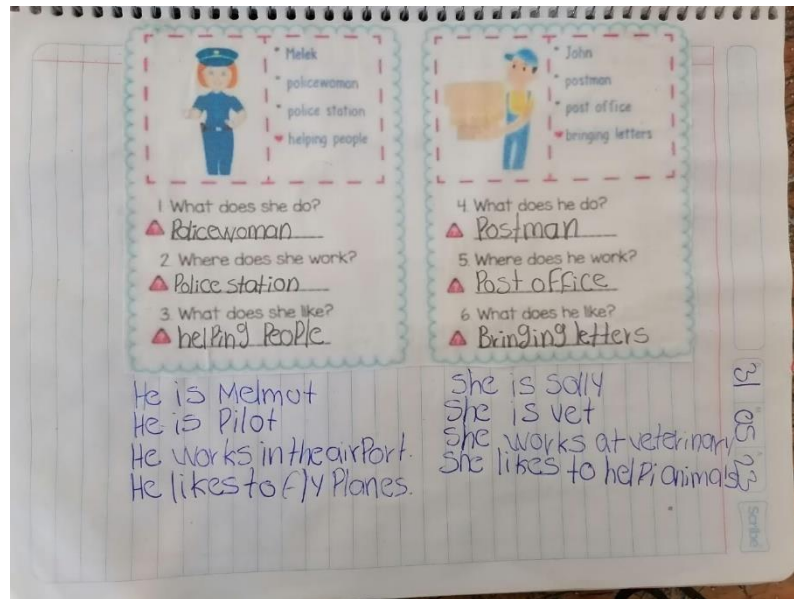 * Melek
* policewoman
* police station
♥ helping people
1 What does she do?
Policewoman
2. Where does she work?
Police station
3. What does she like?
helping people
* John
* postman
* post office
♥ bringing letters
4. What does he do?
Postman
5. Where does he work?
Post office
6. What does he like?
Bringing letters
He is Melmot
He is Pilot
He works in the airport.
He likes to fly Planes.
She is Solly
She is vet
She works at veterinary
She likes to help animals
31 05 23
Scribe